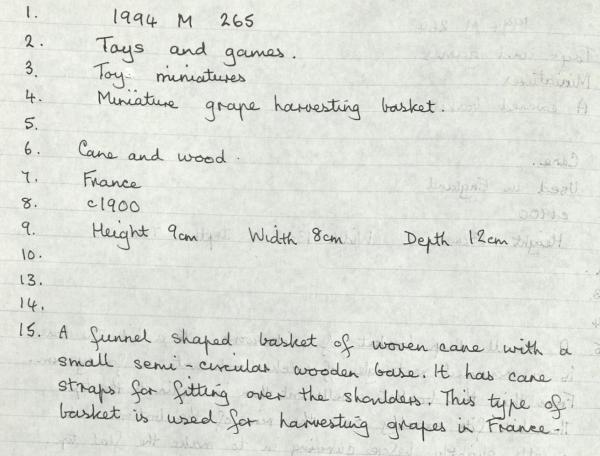 1. 1994 M 265
2. Toys and games.
3. Toy miniatures
4. Miniature grape harvesting basket.
5.
6. Cane and wood.
7. France
8. c1900
9. Height 9cm Width 8cm Depth 12cm
10.
13.
14.
15. A funnel shaped basket of woven cane with a
small semi-circular wooden base. It has cane
straps for fitting over the shoulders. This type of
basket is used for harvesting grapes in France.